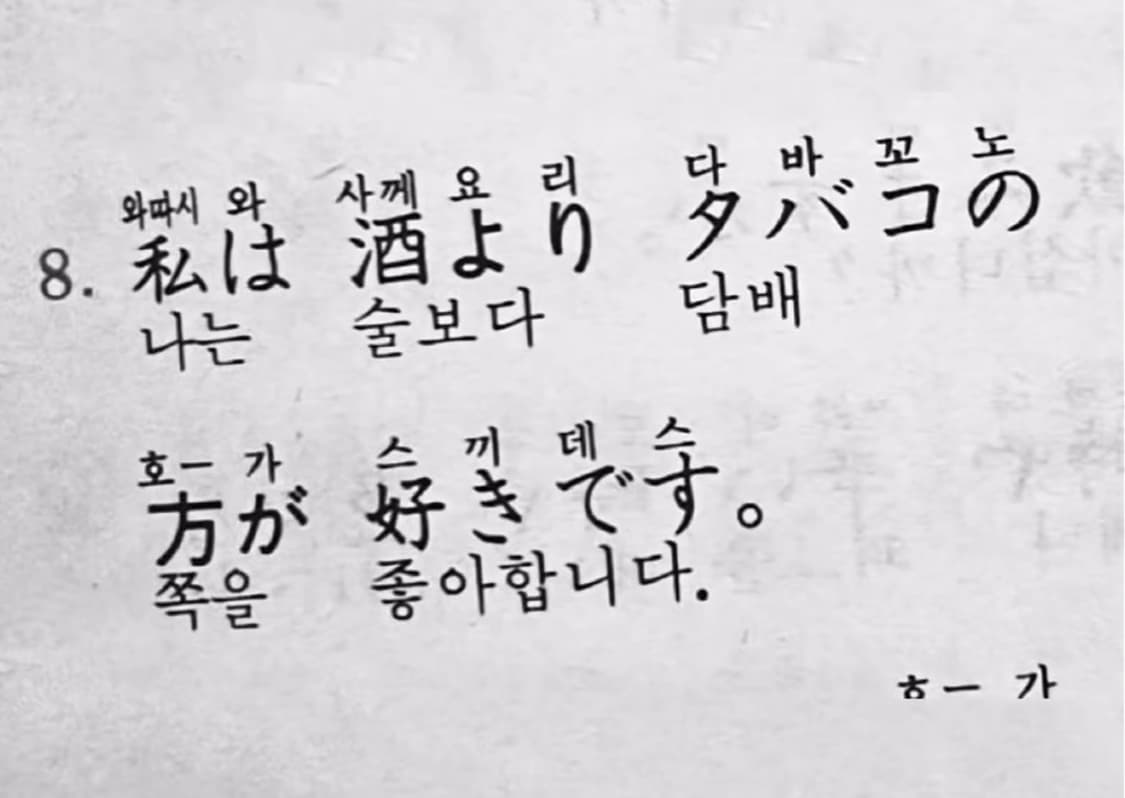 와따시 와 사께 요 리 다 바 꼬 노
8. 私は 酒より タバコの
나는 술보다 담배
호ー 가 스 끼 데 스
方が 好きです。
쪽을 좋아합니다.
호ー 가